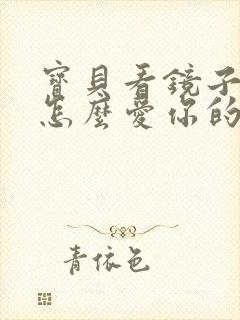 寶貝看鏡子
怎麼愛你的
青依色